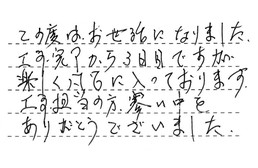 この度はお世話になりました.
工事完了から3日目ですが
楽しくお風呂に入っております.
工事担当の方.寒い中を
ありがとうございました.